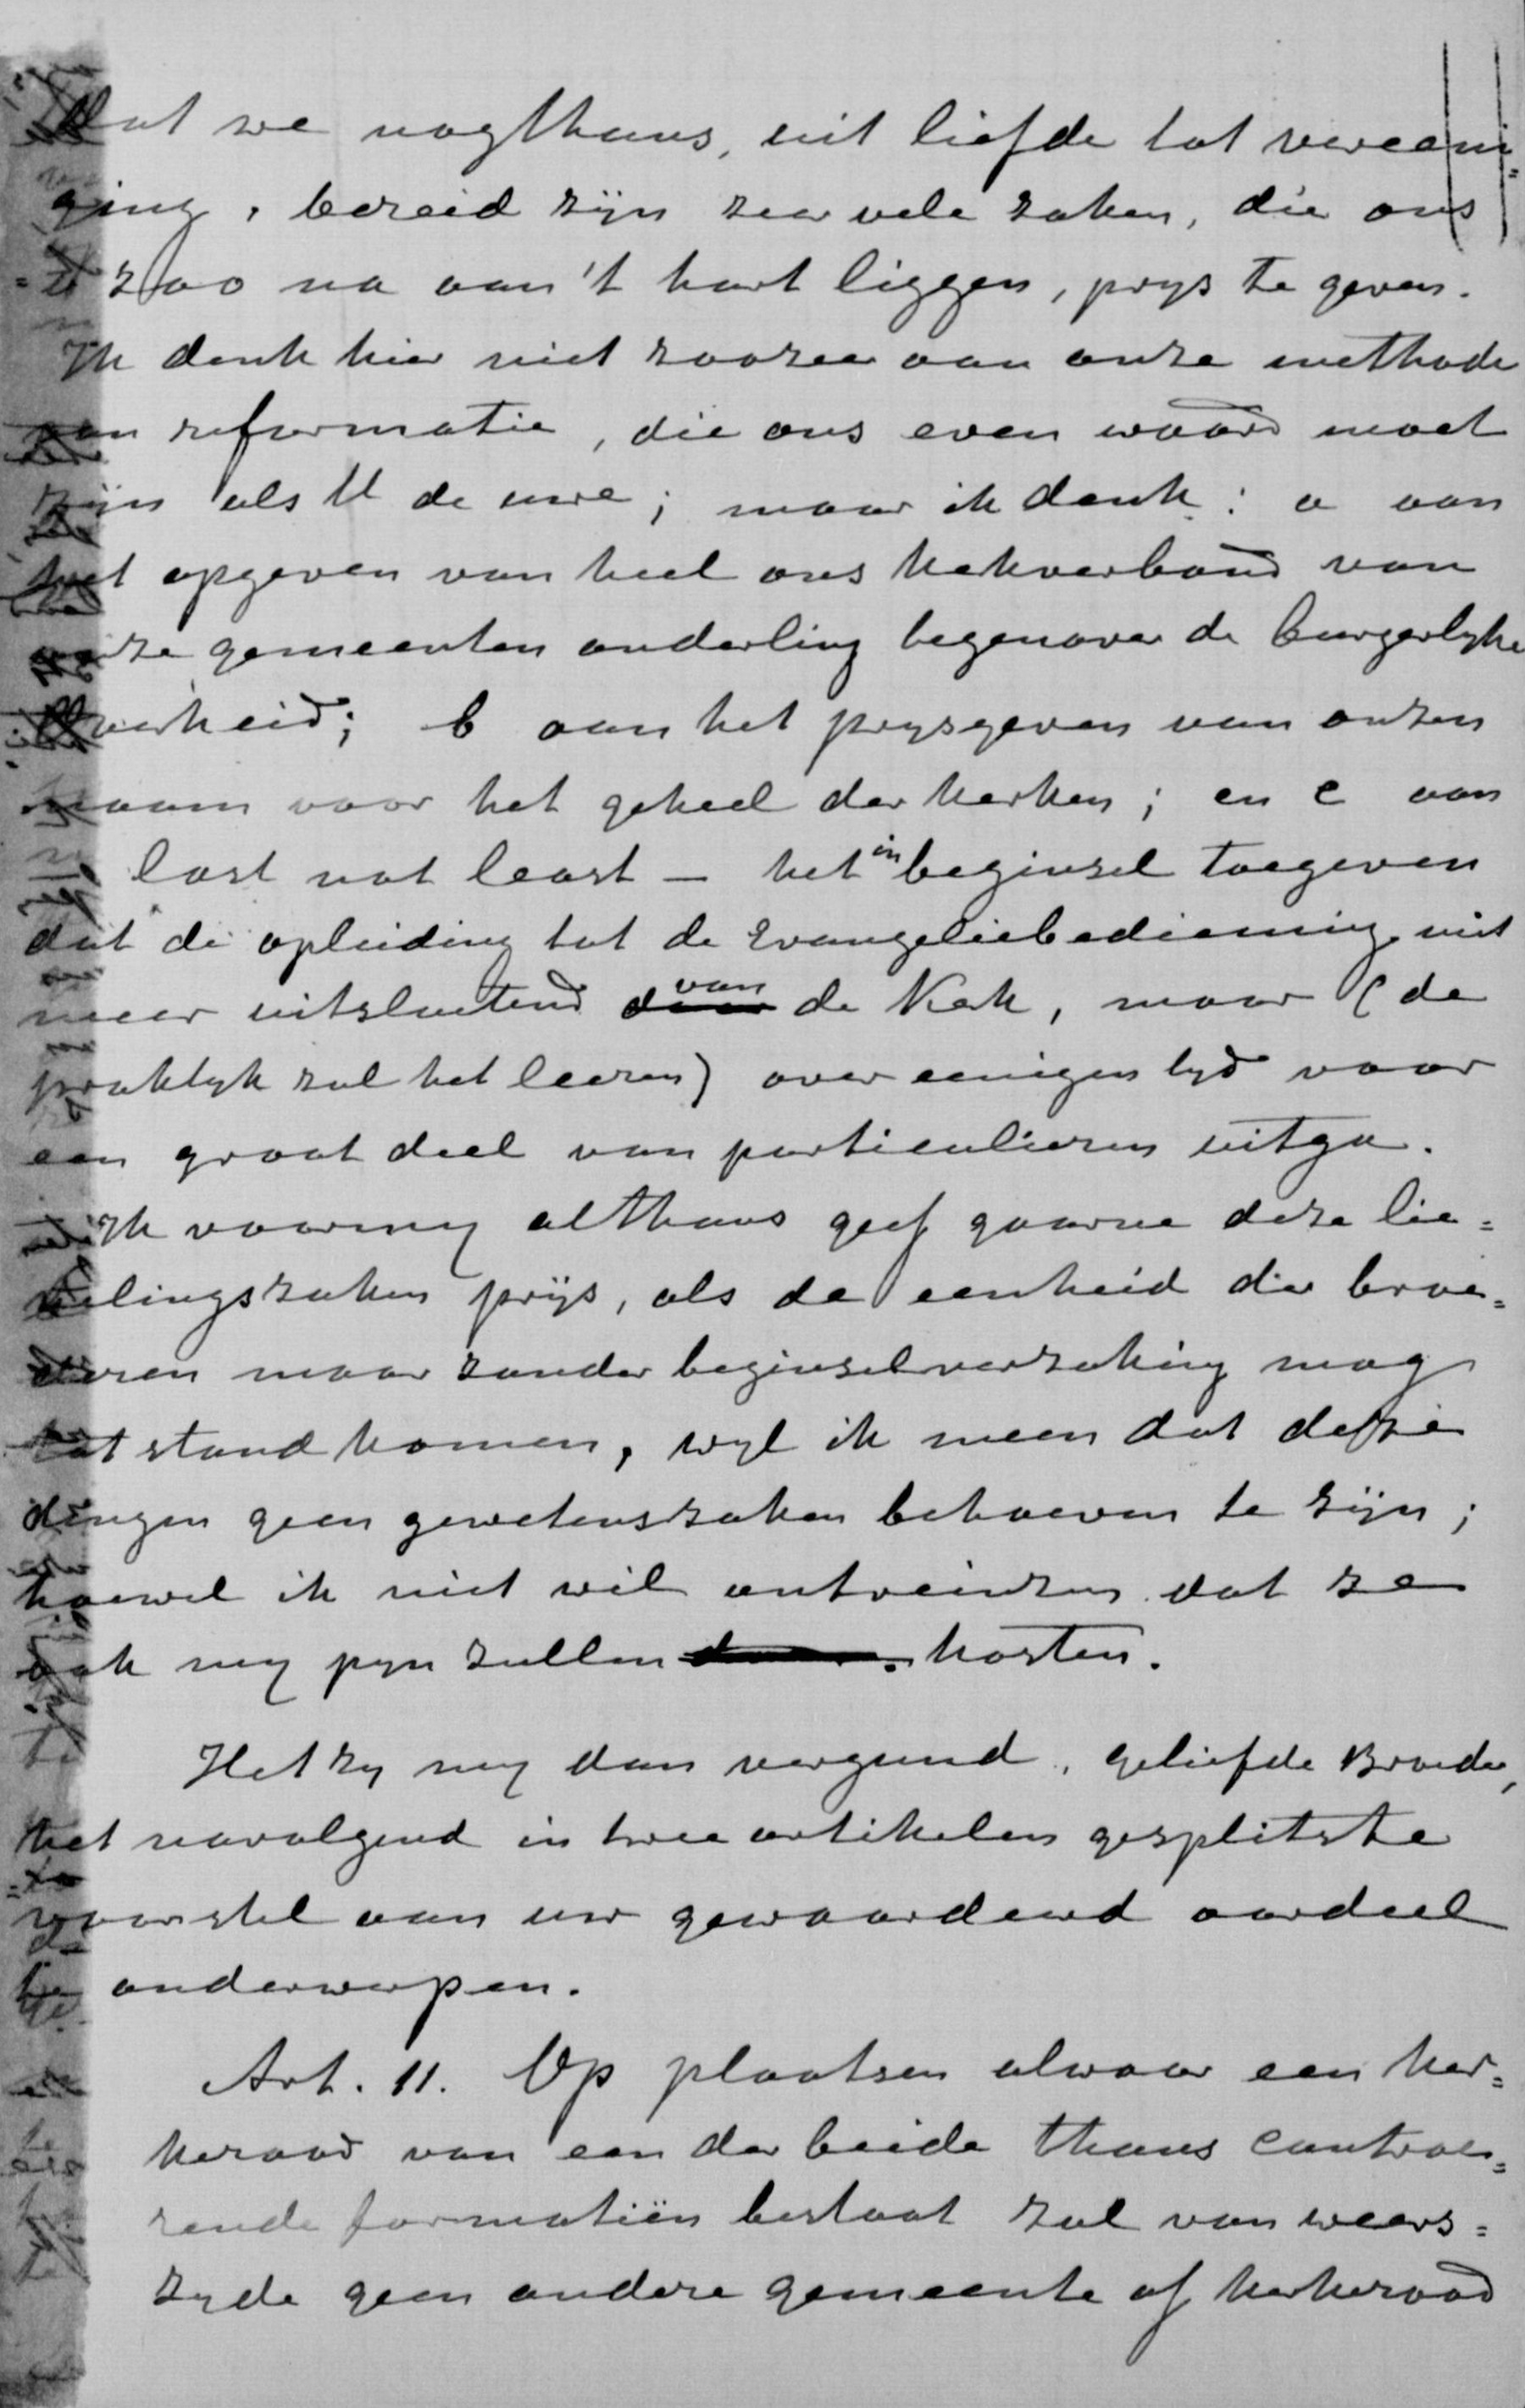 dat we nogthans, uit liefde tot vereeni=
ging, bereid zijn zeer vele zaken, die ons
zoo na aan 't hart liggen, prys te geven.
Ik denk hier niet zoozeer aan onze methode
van reformatie, die ons even waard moet
zijn als U de uwe; maar ik denk: a aan
het opgeven van heel ons kerkverband van
onze gemeenten onderling tegenover de burgerlyke
Overheid; b aan het prysgeven van onzen
naam voor het geheel der kerken; en c aan
last not least — het in beginsel toegeven
dat de opleiding tot de Evangeliebediening niet
meer uitsluitend door van de Kerk, maar (de
praktyk zal het leeren) over eenigen tyd voor
een groot deel van particulieren uitga.
Ik voor my althans geef gaarne deze lie=
velingszaken prijs, als de eenheid der broe=
deren maar zonder beginselverzaking mag
tot stand komen, wyl ik meen dat deze
dingen geen gewetenszaken behoeven te zijn;
hoewel ik niet wil ontveinzen dat ze
ook my pyn zullen kosten.
Het zy my dan vergund, geliefde Broeder,
het navolgend in twee artikelen gesplitste
voorstel aan uw gewaardeerd oordeel
te onderwerpen.
Art. 11. Op plaatsen alwaar een ker=
keraad van een der beide thans
formatiën bestaat zal van weers=
zyde geen andere gemeente of kerkeraad